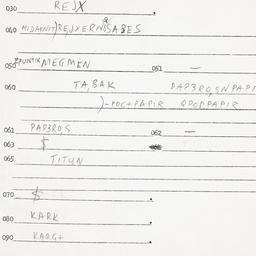 030 REJX
040 MIDAHNIT) REJXERNISABES
050 PUNTIK MEGMEN 051 —
060 TABAK PAPEROS, SNPAPI
)-POC+PAPIR QPORPAPIR
061 PAPEROS 062 —
063 $
065 TITUN
070 $
080 KARK
090 KARG+